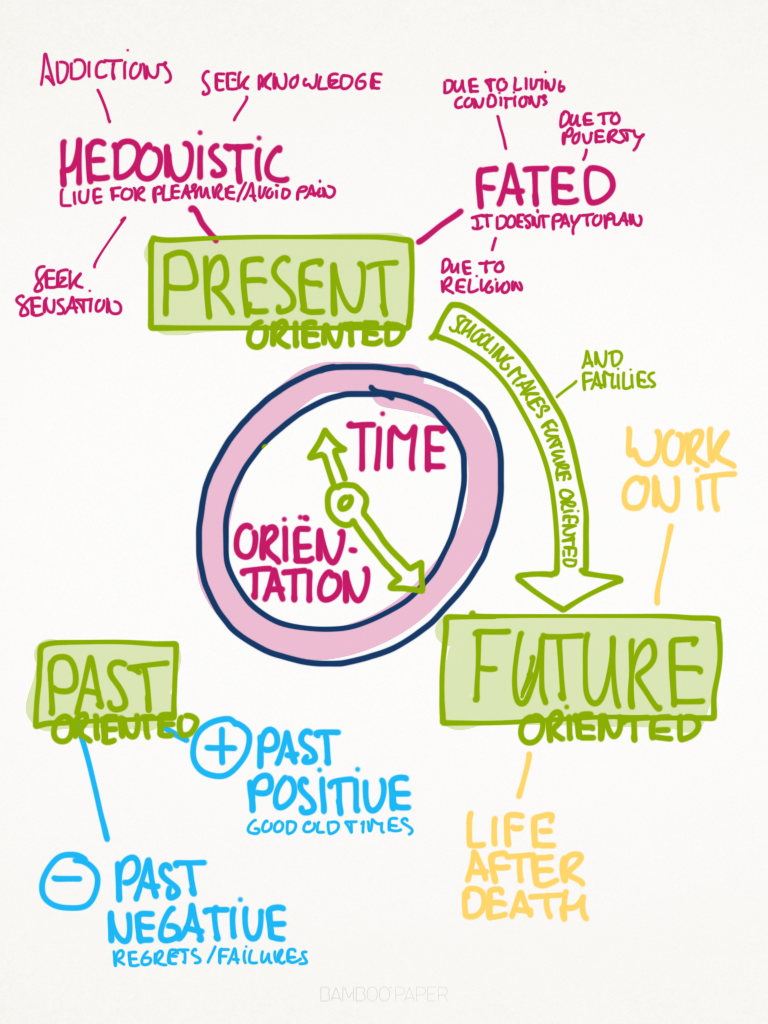 ADDICTIONS
SEEK KNOWLEDGE
HEDONISTIC
LIVE FOR PLEASURE/AVOID PAIN
SEEK
SENSATION
DUE TO LIVING
CONDITIONS
DUE TO
POVERTY
FATED
IT DOESN'T PAY TO PLAN
DUE TO
RELIGION
PRESENT
ORIENTED
SCHOOLING MAKES FUTURE ORIENTED
AND
FAMILIES
TIME
ORIËN-
TATION
WORK
ON IT
FUTURE
ORIENTED
LIFE
AFTER
DEATH
PAST
ORIENTED
+ PAST
POSITIVE
GOOD OLD TIMES
- PAST
NEGATIVE
REGRETS/FAILURES
BAMBOO PAPER